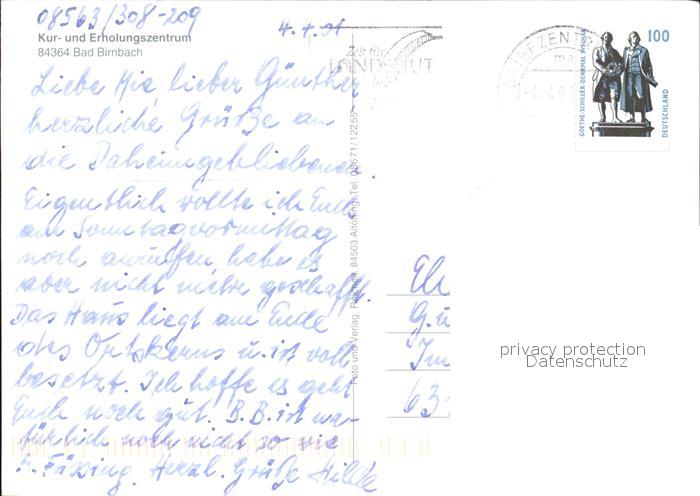 08563/308-209
4.4.01
Kur- und Erholungszentrum
84364 Bad Birnbach
Liebe Mia lieber Günther
herzliche Grüße an
die Daheimgebliebenen.
Eigentlich wollte ich Euch
am Sonntagvormittag
noch anrufen, habe es
aber nicht mehr geschafft.
Das Haus liegt am Ende
des Ortskerns u. ist voll
besetzt. Ich hoffe es geht
Euch noch gut. B.B. ist na-
türlich noch nicht so wie
Füssing. Herzl. Grüße Hilde
Foto und Verlag: 84503 Altötting, Tel. 08671/12255
Zeit für
LANDSHUT
BRIEFZENTRUM
100
GOETHE-SCHILLER-DENKMAL WEIMAR
DEUTSCHLAND
63
privacy protection
Datenschutz